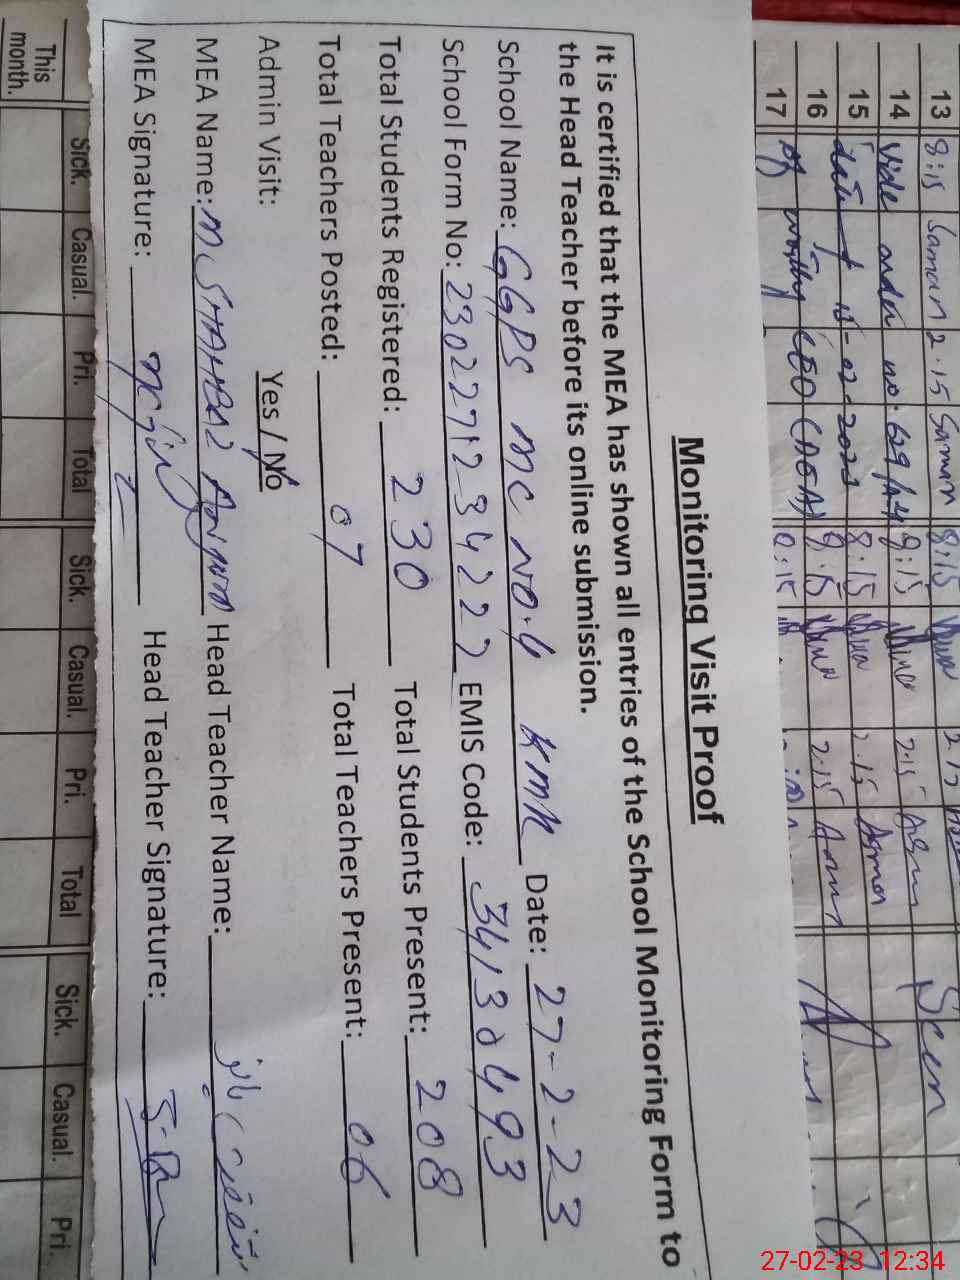 13 8:15 Saman 2.15 Saman 8:15
14 vide order no: 629/A4 8:15 2.15 Seen
15 dated 15-02-2023 8:15 2.15 Asma
16 of worthy CEO (DEA) 8:15 2:15 Asma
17
Monitoring Visit Proof
It is certified that the MEA has shown all entries of the School Monitoring Form to
the Head Teacher before its online submission.
School Name: GGPS MC NO.4 KMK Date: 27-2-23
School Form No: 23022712834222 EMIS Code: 34130493
Total Students Registered: 230 Total Students Present: 208
Total Teachers Posted: 07 Total Teachers Present: 06
Admin Visit: Yes / No
MEA Name: M SHAHBAZ Head Teacher Name:
MEA Signature: Head Teacher Signature:
Sick. Casual. Pri. Total Sick. Casual. Pri. Total Sick. Casual. Pri.
This
month.
27-02-23 12:34